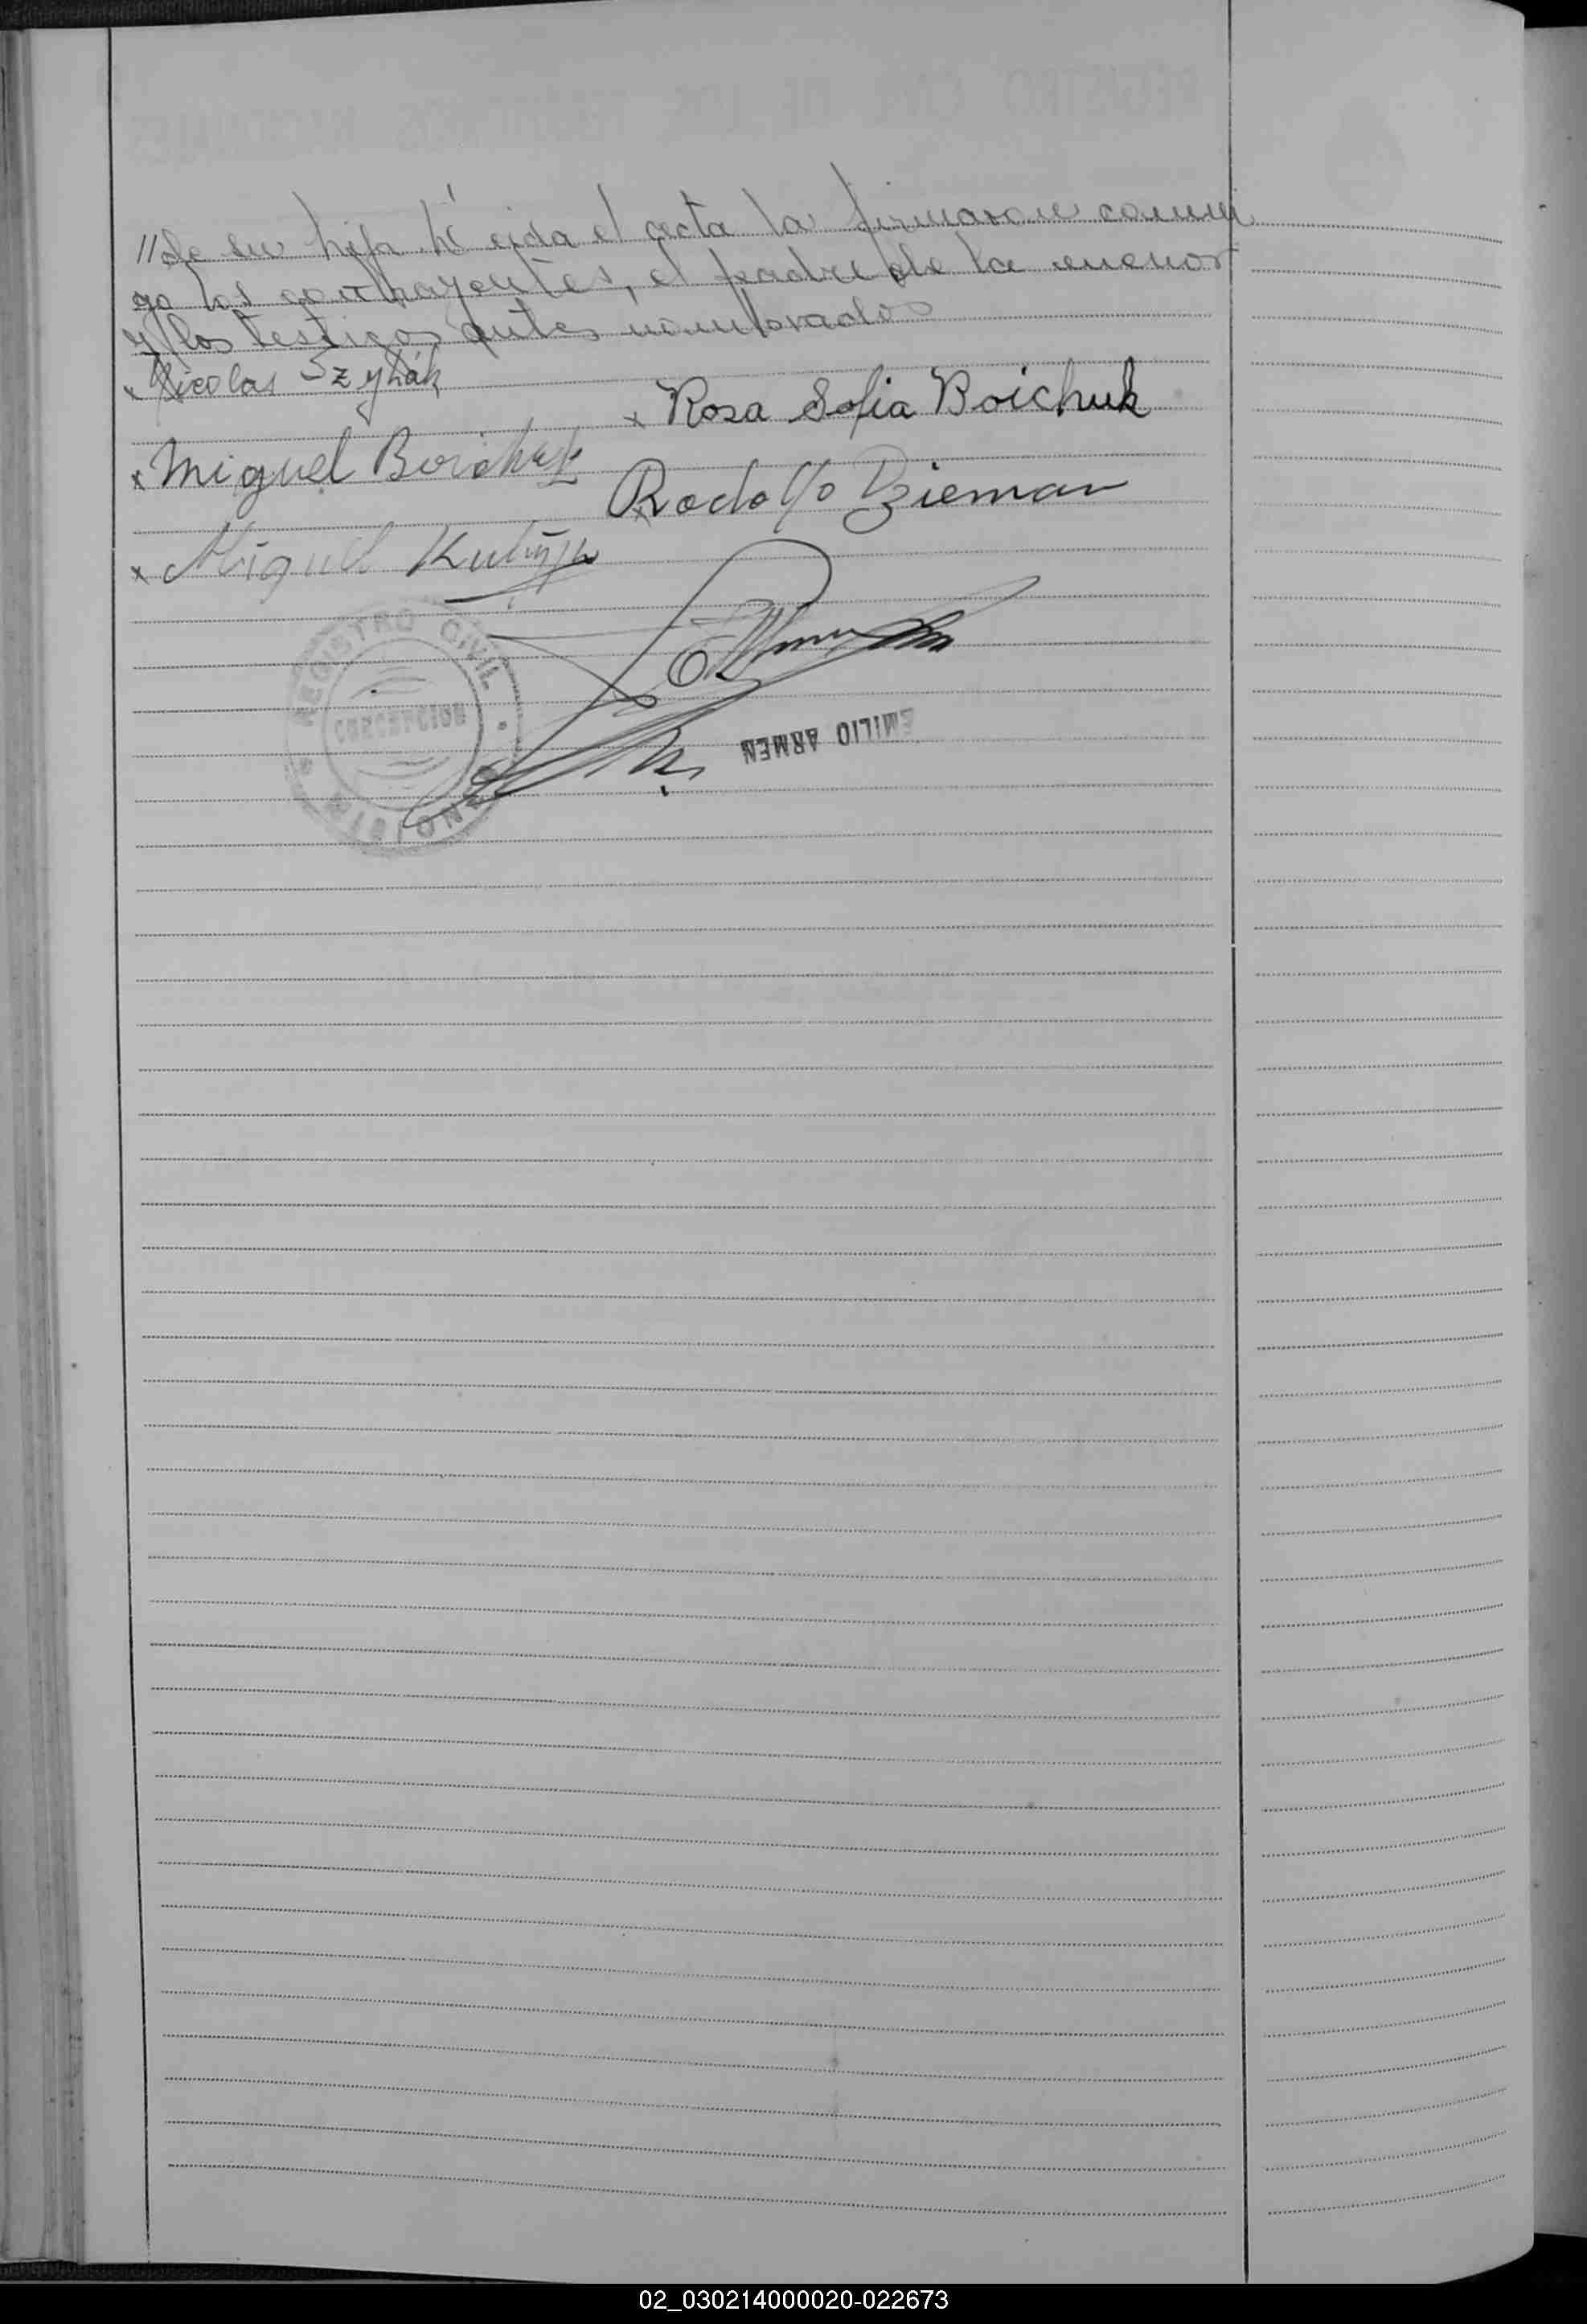 //de su hija. Leida el acta la firmaron conmi
go los contrayentes, el padre de la menor
y los testigos antes nombrados
x Nicolas Szynak
x Rosa Sofia Boichuk
x Miguel Boichuk
x Rodolfo Dzieman
x Miguel
REGISTRO CIVIL
CONCEPCION
MISIONES
EMILIO ARMEN
02_030214000020-022673